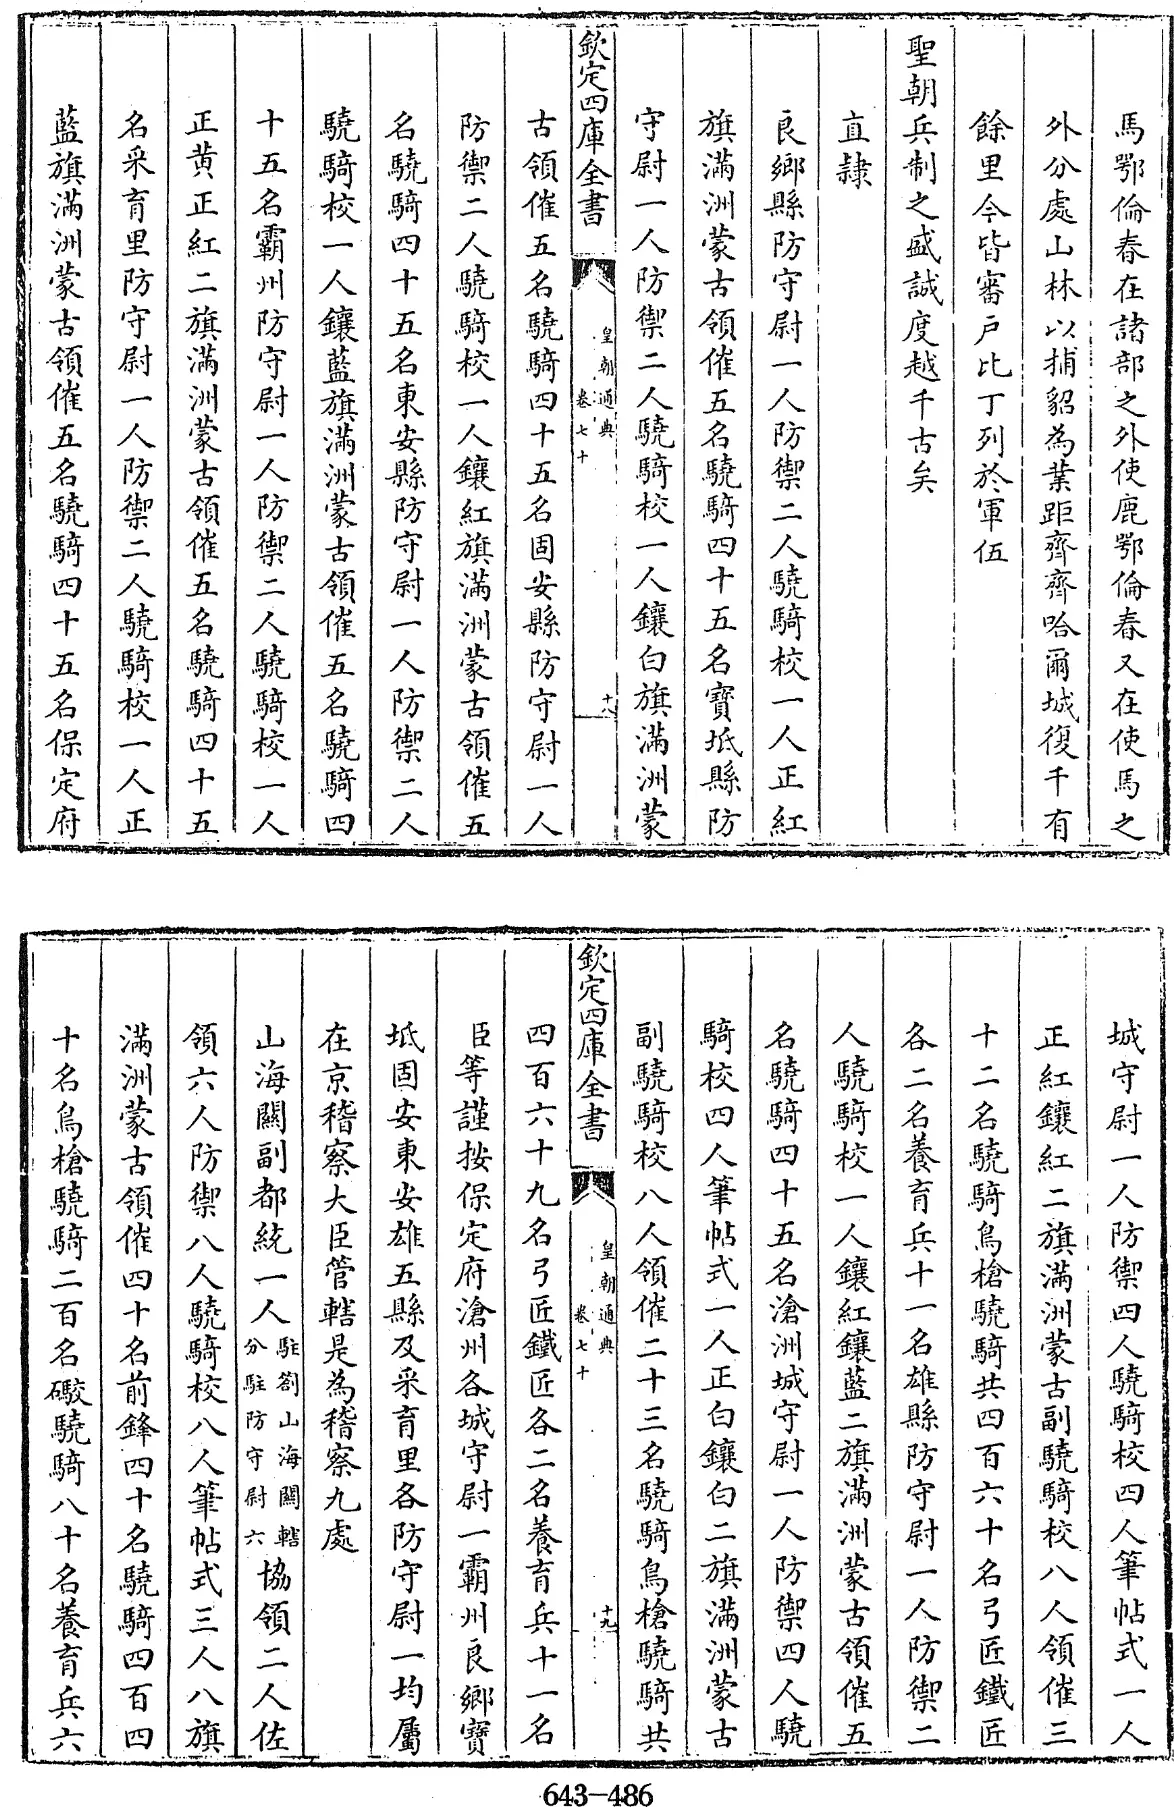 馬鄂倫春在諸部之外使鹿鄂倫春又在使馬之
外分處山林以捕貂為業距齊齊哈爾城復千有
餘里今皆審户比丁列於軍伍
聖朝兵制之盛誠度越千古矣
直隸
良鄉縣防守尉一人防禦二人驍騎校一人正紅
旗滿洲蒙古領催五名驍騎四十五名寶坻縣防
守尉一人防禦二人驍騎校一人鑲白旗滿洲蒙
欽定四庫全書
皇朝通典
卷七十
十八
古領催五名驍騎四十五名固安縣防守尉一人
防禦二人驍騎校一人鑲紅旗滿洲蒙古領催五
名驍騎四十五名東安縣防守尉一人防禦二人
驍騎校一人鑲藍旗滿洲蒙古領催五名驍騎四
十五名霸州防守尉一人防禦二人驍騎校一人
正黄正紅二旗滿洲蒙古領催五名驍騎四十五
名采育里防守尉一人防禦二人驍騎校一人正
藍旗滿洲蒙古領催五名驍騎四十五名保定府
城守尉一人防禦四人驍騎校四人筆帖式一人
正紅鑲紅二旗滿洲蒙古副驍騎校八人領催三
十二名驍騎鳥槍驍騎共四百六十名弓匠鐵匠
各二名養育兵十一名雄縣防守尉一人防禦二
人驍騎校一人鑲紅鑲藍二旗滿洲蒙古領催五
名驍騎四十五名滄洲城守尉一人防禦四人驍
騎校四人筆帖式一人正白鑲白二旗滿洲蒙古
副驍騎校八人領催二十三名驍騎鳥槍驍騎共
欽定四庫全書
皇朝通典
卷七十
十九
四百六十九名弓匠鐵匠各二名養育兵十一名
臣等謹按保定府滄州各城守尉一霸州良鄉寶
坻固安東安雄五縣及采育里各防守尉一均屬
在京稽察大臣管轄是為稽察九處
山海關副都統一人駐劄山海關轄分駐防守尉六協領二人佐
領六人防禦八人驍騎校八人筆帖式三人八旗
滿洲蒙古領催四十名前鋒四十名驍騎四百四
十名鳥槍驍騎二百名礮驍騎八十名養育兵六
643-486